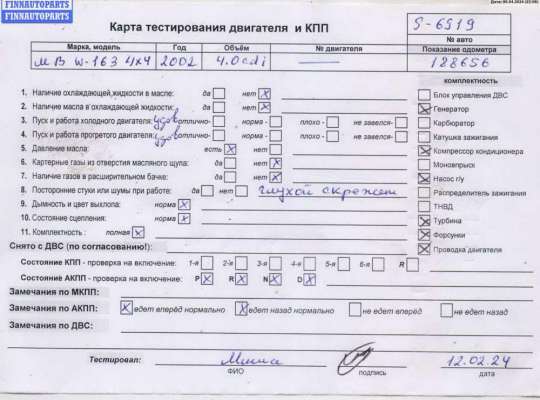 FINNAUTOPARTS
FINNAUTOPARTS
Date: 05.04.2024
Карта тестирования двигателя и КПП
S-6519
№ авто
Марка, модель Год Объём № двигателя Показание одометра
MB W-163 4x4 2002 4.0cdi 128656
комплектность
1. Наличие охлаждающей жидкости в масле: да нет X
2. Наличие масла в охлаждающей жидкости: да нет X
3. Пуск и работа холодного двигателя: удов отлично- норма - плохо - не завелся-
4. Пуск и работа прогретого двигателя: удов отлично- норма - плохо - не завелся-
5. Давление масла: есть X нет
6. Картерные газы из отверстия масляного щупа: да нет X
7. Наличие газов в расширительном бачке: да нет X
8. Посторонние стуки или шумы при работе: да нет глухой скрежет
9. Дымность и цвет выхлопа: норма X
10. Состояние сцепления: норма X
11. Комплектность : полная X
Блок управления ДВС
X Генератор
Карбюратор
Катушка зажигания
X Компрессор кондиционера
Моновпрыск
X Насос г/у
Распределитель зажигания
ТНВД
X Турбина
X Форсунки
X Проводка двигателя
Снято с ДВС (по согласованию!):
Состояние КПП - проверка на включение: 1-я 2-я 3-я 4-я 5-я 6-я R
Состояние АКПП - проверка на включение: P X R X N X D X
Замечания по МКПП:
Замечания по АКПП: X едет вперёд нормально X едет назад нормально не едет вперёд не едет назад
Замечания по ДВС:
Тестировал: Миша 12.02.24
ФИО подпись дата